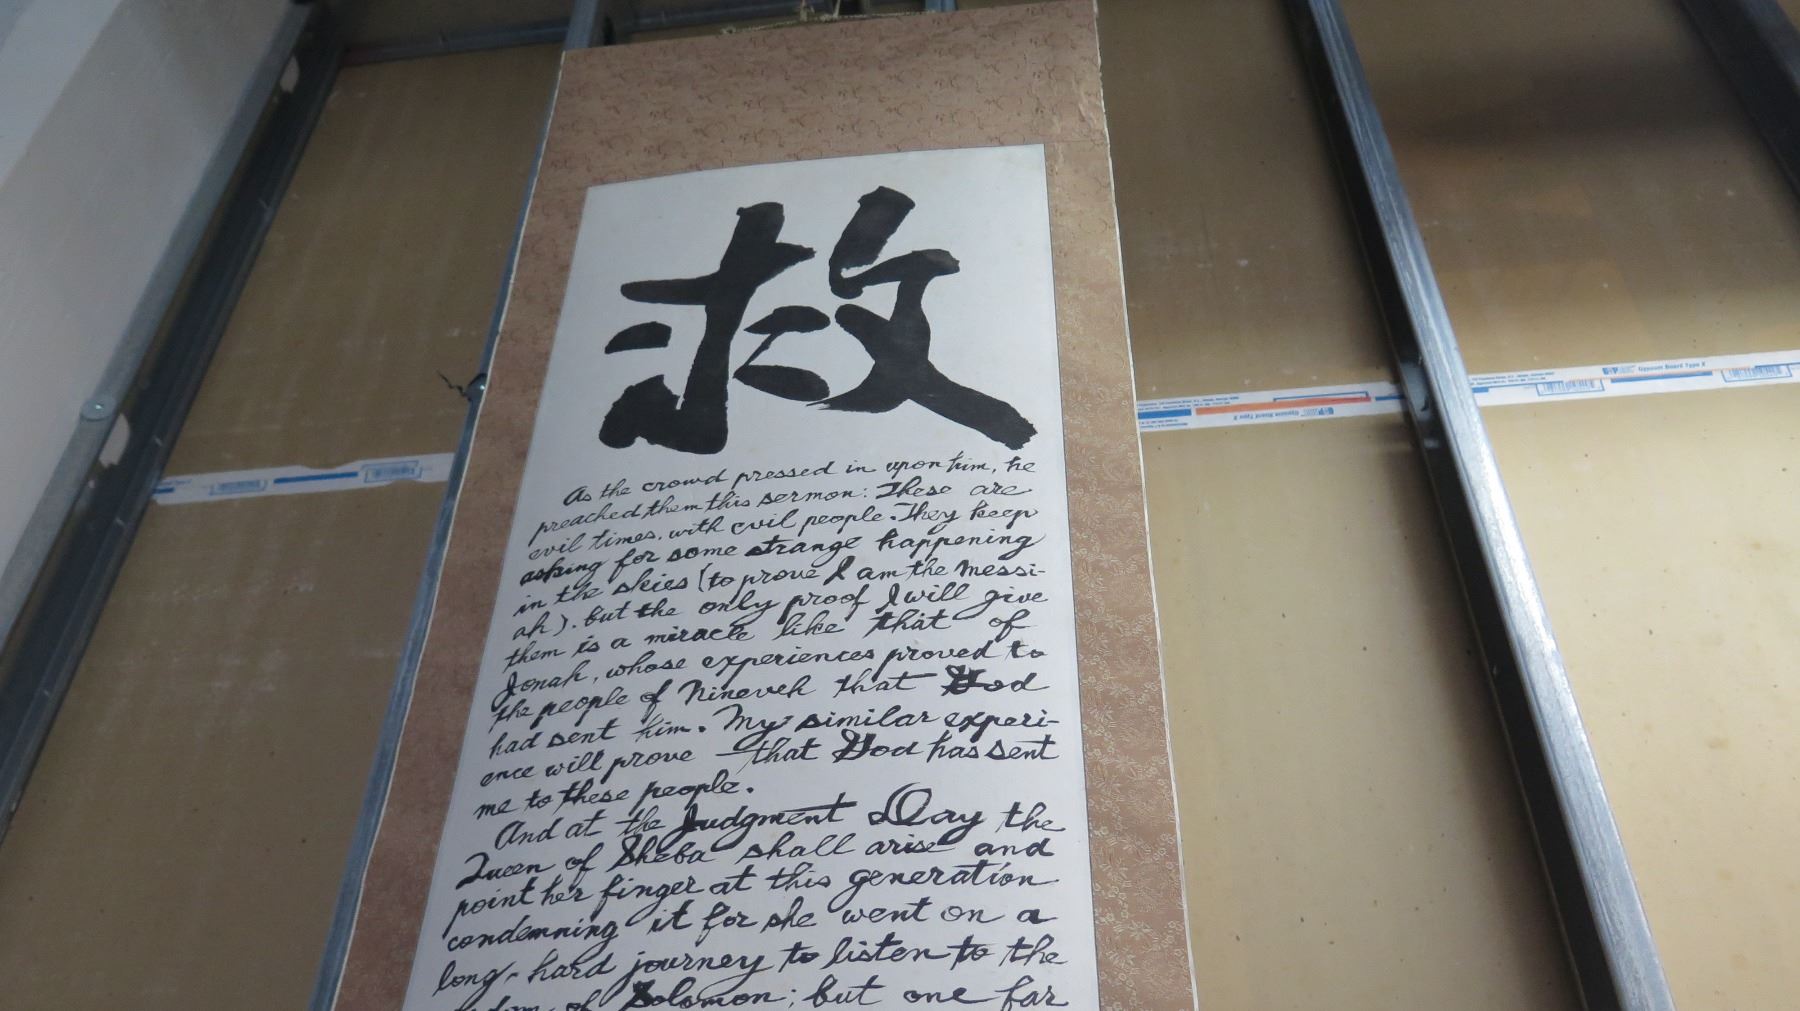 救
As the crowd pressed in upon him, he
preached them this sermon: These are
evil times, with evil people. They keep
asking for some strange happening
in the skies (to prove I am the Messi-
ah). but the only proof I will give
them is a miracle like that of
Jonah, whose experiences proved to
the people of Nineveh that God
had sent him. My similar experi-
ence will prove that God has sent
me to these people.
And at the Judgment Day the
Queen of Sheba shall arise and
point her finger at this generation
condemning it for she went on a
long, hard journey to listen to the
of Solomon; but one far
Gypsum Board Type X
Gypsum Board Type X